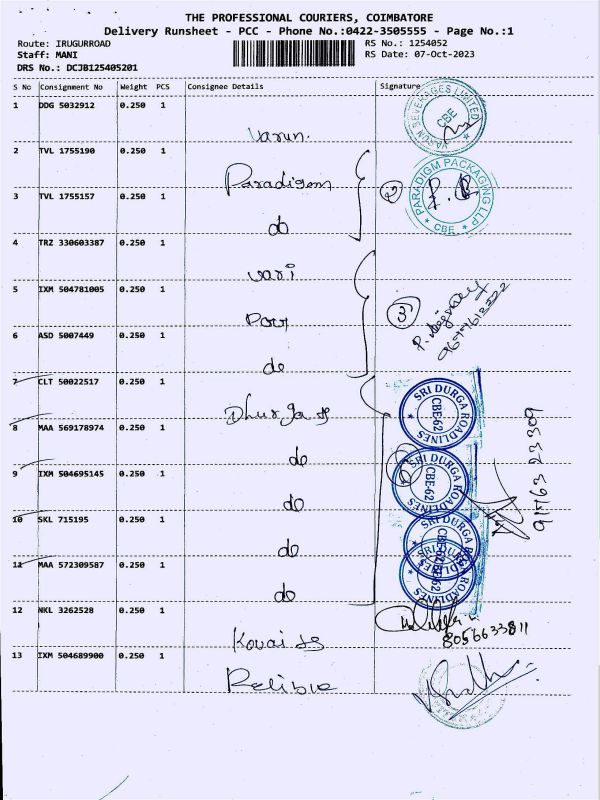 THE PROFESSIONAL COURIERS, COIMBATORE
Delivery Runsheet - PCC - Phone No.:0422-3505555 - Page No.:1
Route: IRUGURROAD
RS No.: 1254052
Staff: MANI
RS Date: 07-Oct-2023
DRS No.: DCJB125405201
S No Consignment No Weight PCS Consignee Details Signature
1 DDG 5032912 0.250 1
Varun. VARUN BEVERAGES LIMITED CBE
2 TVL 1755190 0.250 1
Paradigm 2 PARADIGM PACKAGING LLP CBE
3 TVL 1755157 0.250 1
do
4 TRZ 330603387 0.250 1
vari
5 IXM 504781005 0.250 1
3
6 ASD 5007449 0.250 1
do
7 CLT 50022517 0.250 1
SRI DURGA ROADLINES CBE-62
8 MAA 569178974 0.250 1
do
9 IXM 504695145 0.250 1
do SRI DURGA ROADLINES CBE-62
91763 23309
10 SKL 715195 0.250 1
do SRI DURGA ROADLINES CBE-62
11 MAA 572309587 0.250 1
do SRI DURGA ROADLINES CBE-62
12 NKL 3262528 0.250 1
Kovai
8056633811
13 IXM 504689900 0.250 1
Relible